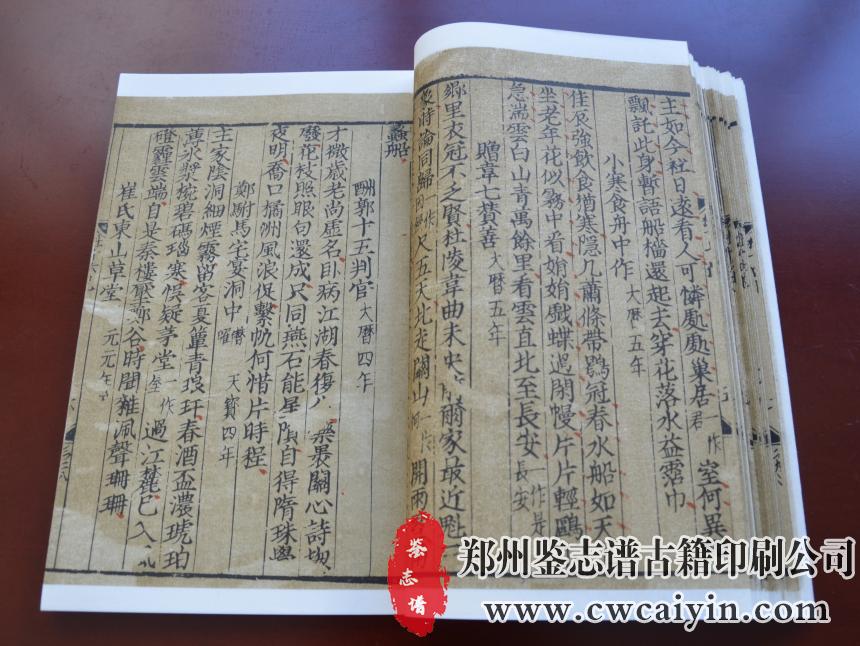 主如今社日遠看人可憐處處巢居一作君室何異
飄託此身暫語船檣還起去穿花落水益霑巾
小寒食舟中作 大曆五年
佳辰強飲食猶寒隱几蕭條帶鶡冠春水船如天
坐老年花似霧中看娟娟戲蝶過閒幔片片輕鷗
急湍雲白山青萬餘里看雲直北至長安一作是長安
贈韋七贊善 大曆五年
鄉里衣冠不乏賢杜陵韋曲未央爾家最近魁
象時論同歸一作尺五天北走關山一作河開雨
蟲船
酬郭十五判官 大曆四年
才微歲老尚虛名臥病江湖春復藥裹關心詩總
廢花枝照眼句還成只同燕石能星隕自得隋珠覺
夜明喬口橘洲風浪促繫帆何惜片時程
鄭駙馬宅宴洞中 曜 天寶四年
主家陰洞細煙霧留客夏簟青琅玕春酒盃濃琥珀
薄冰漿椀碧碼瑙寒悞疑茅堂一作過江麓已入
磴霾雲端自是秦樓壓鄭谷時聞雜珮聲珊珊
崔氏東山草堂 元元年
鉴志谱
郑州鉴志谱古籍印刷公司
www.cwcaiyin.com